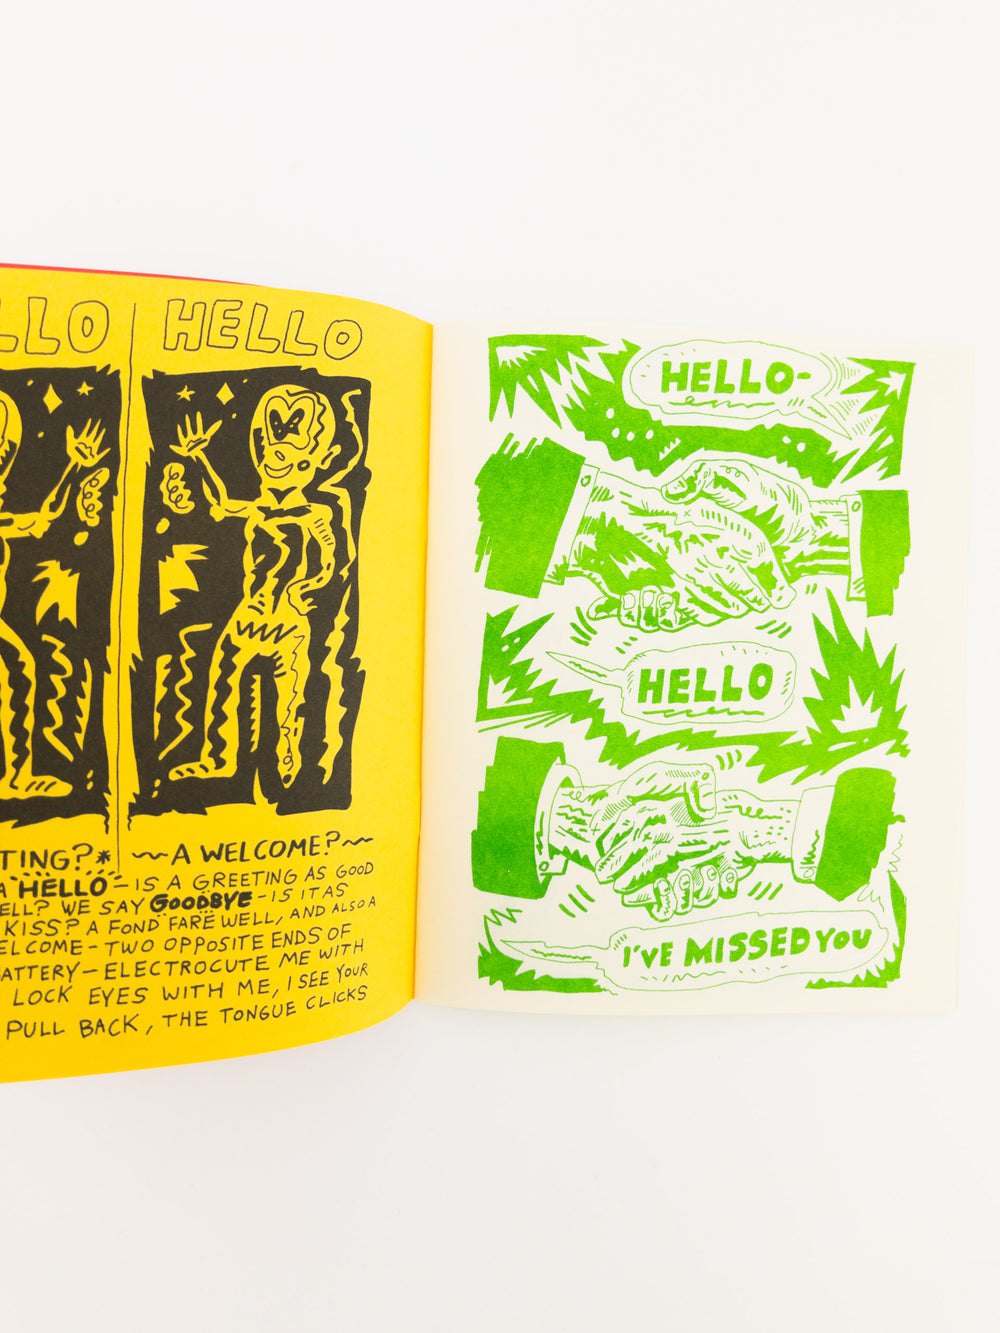 LLO HELLO
TING?* ~A WELCOME?~
A HELLO - IS A GREETING AS GOOD
ELL? WE SAY GOODBYE - IS IT AS
KISS? A FOND FARE WELL, AND ALSO A
ELCOME - TWO OPPOSITE ENDS OF
ATTERY - ELECTROCUTE ME WITH
LOCK EYES WITH ME, I SEE YOUR
PULL BACK, THE TONGUE CLICKS
HELLO-
HELLO
I'VE MISSED YOU